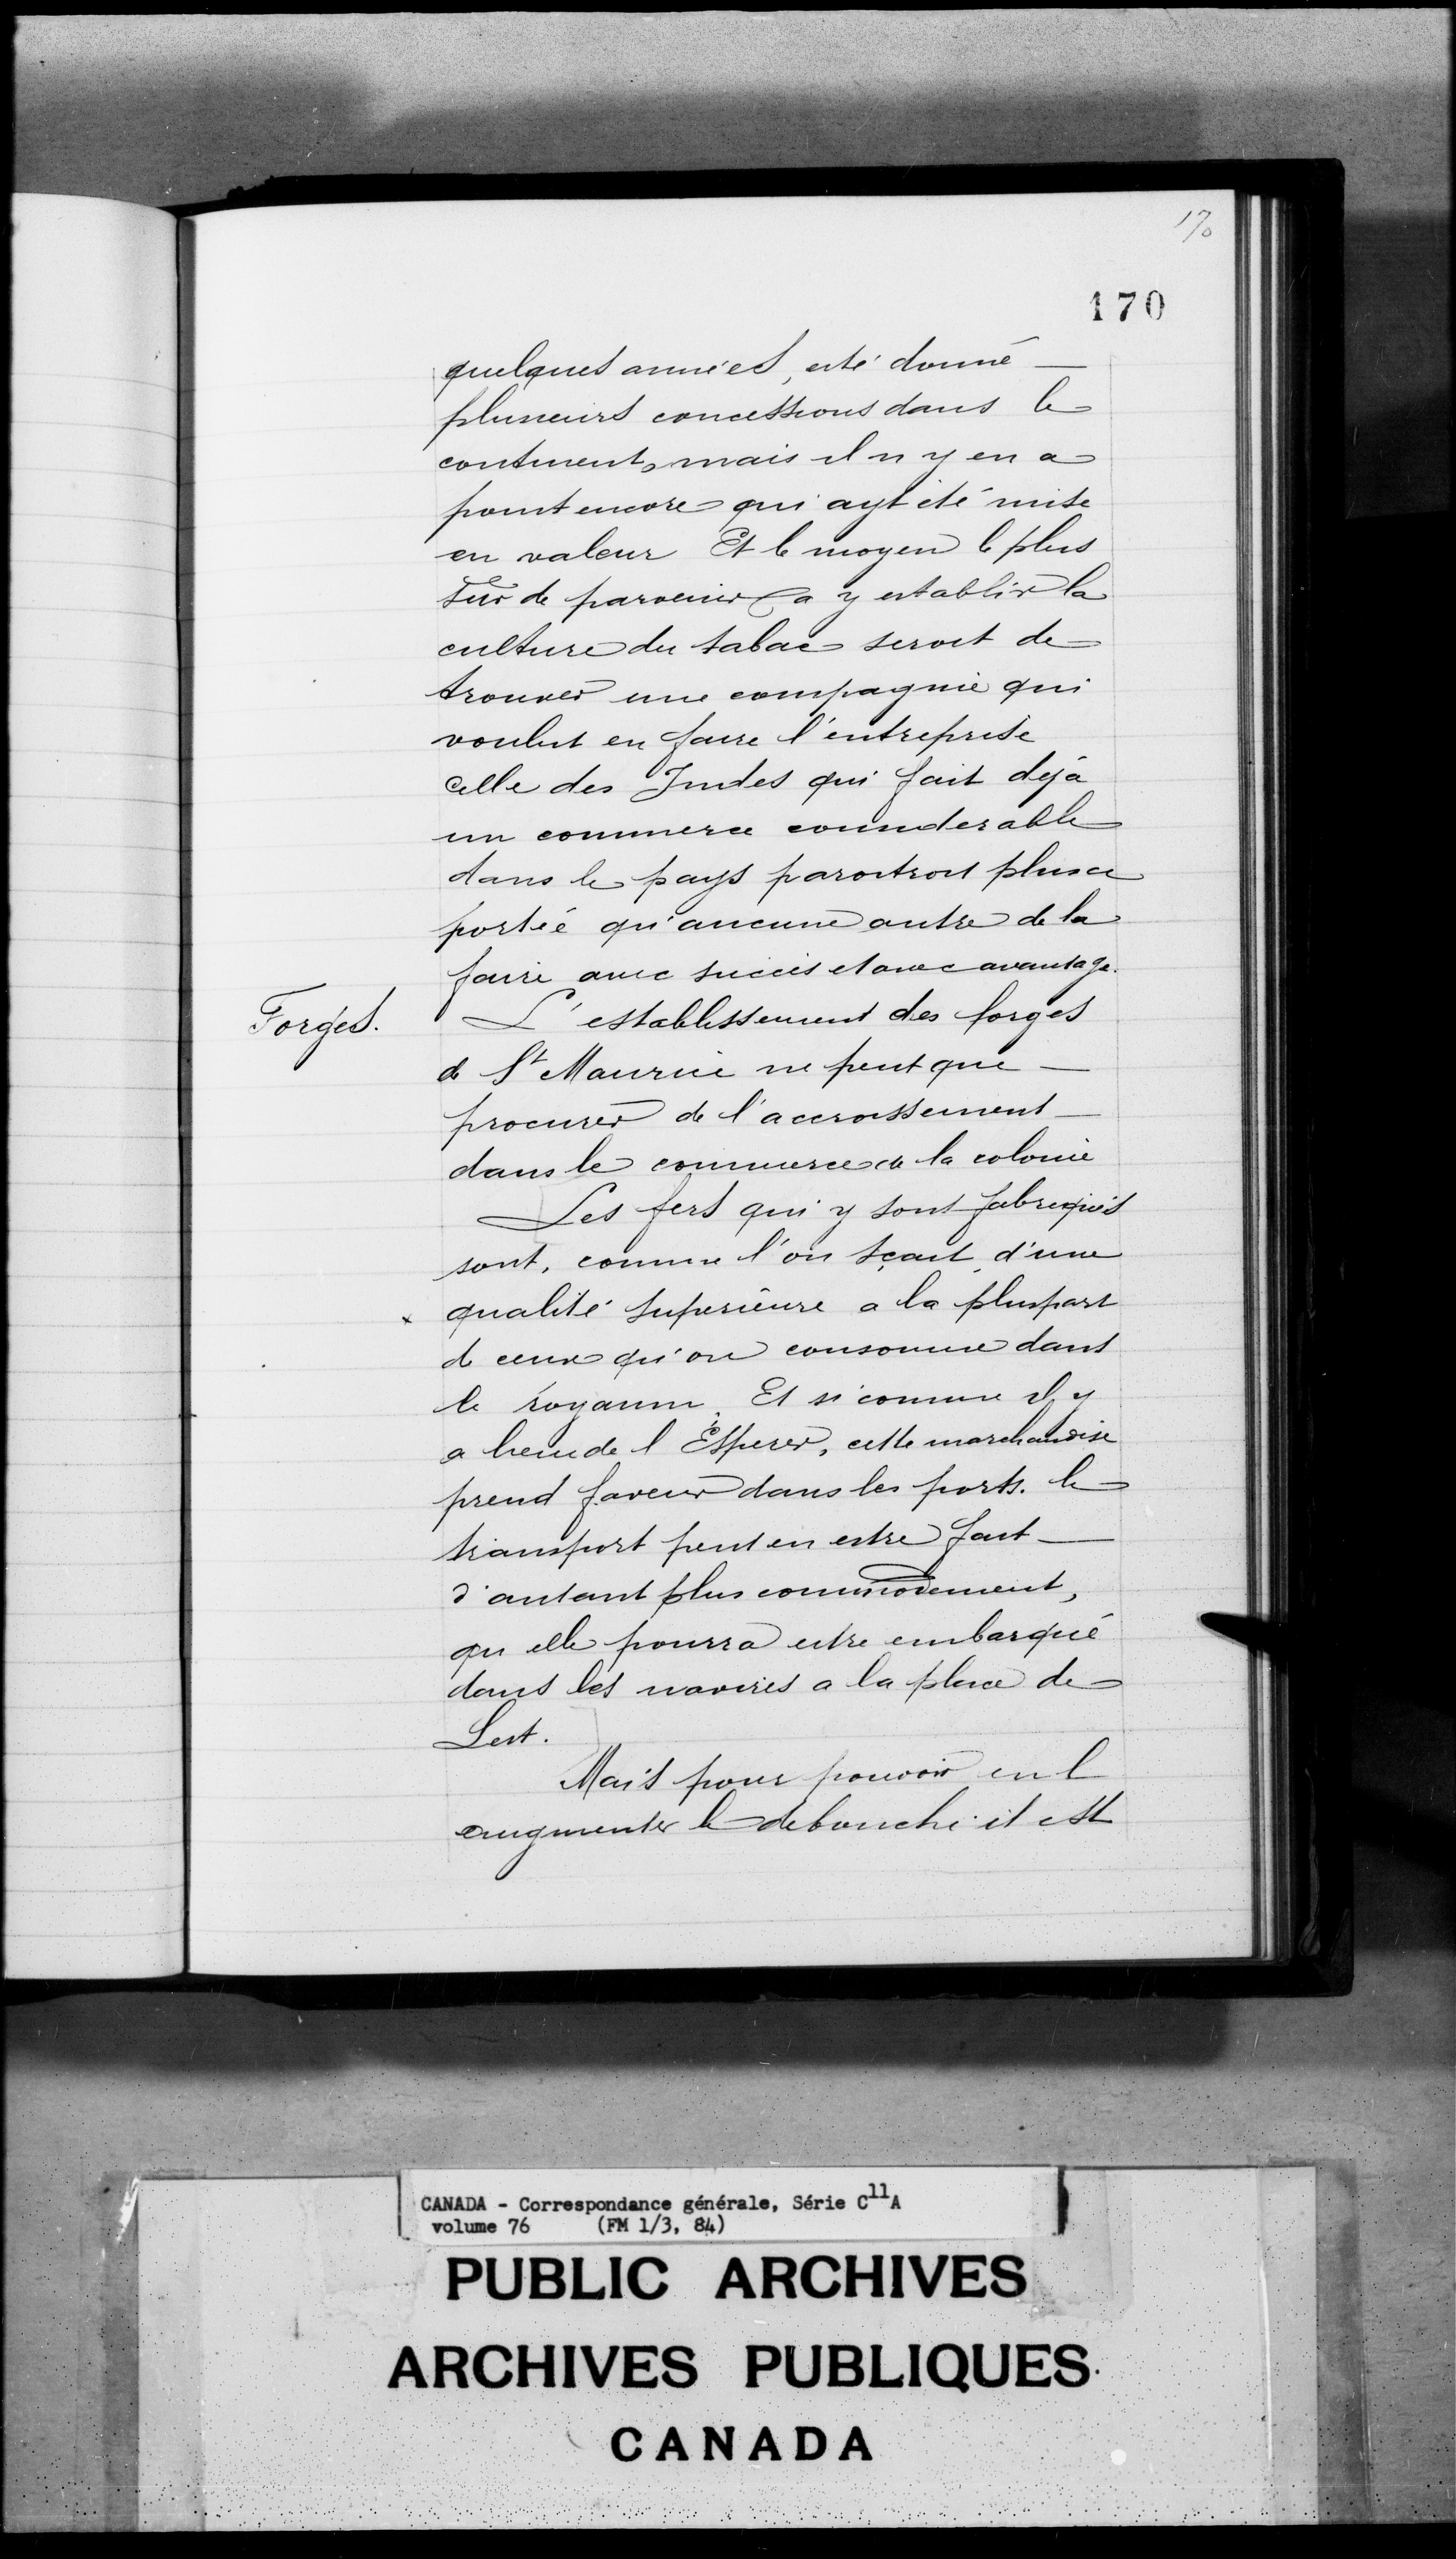 170
170
quelques années, esté donné
plusieurs concessions dans le
continent, mais il n y en a
point encore qui ayt été mise
en valeur Et le moyen le plus
sur de parvenir a y establir la
culture du tabac seroit de
trouver une compagnie qui
voulut en faire l'entreprise
celle des Indes qui fait déjà
un commerce considerable
dans le pays paroitroit plus a
portée qu'aucune autre de la
faire avec succès et avec avantage.
Forges.
L'establissement des forges
de St Maurice ne peut que
procurer de l'accroissement
dans le commerce de la colonie
Les fers qui y sont fabriqués
sont, comme l'on sçait, d'une
x qualité superieure a la pluspart
de ceux qu'on consomme dans
le royaume. Et si comme il y
a lieu de l Esperer, cette marchandise
prend faveur dans les ports. le
transport peut en estre fait
d'autant plus commodement,
qu elle pourra estre embarqué
dans les navires a la place de
Lest.
Mais pour pouvoir en l
augmenter le debouché il est
CANADA - Correspondance générale, Série C11A
volume 76 (FM 1/3, 84)
PUBLIC ARCHIVES
ARCHIVES PUBLIQUES
CANADA